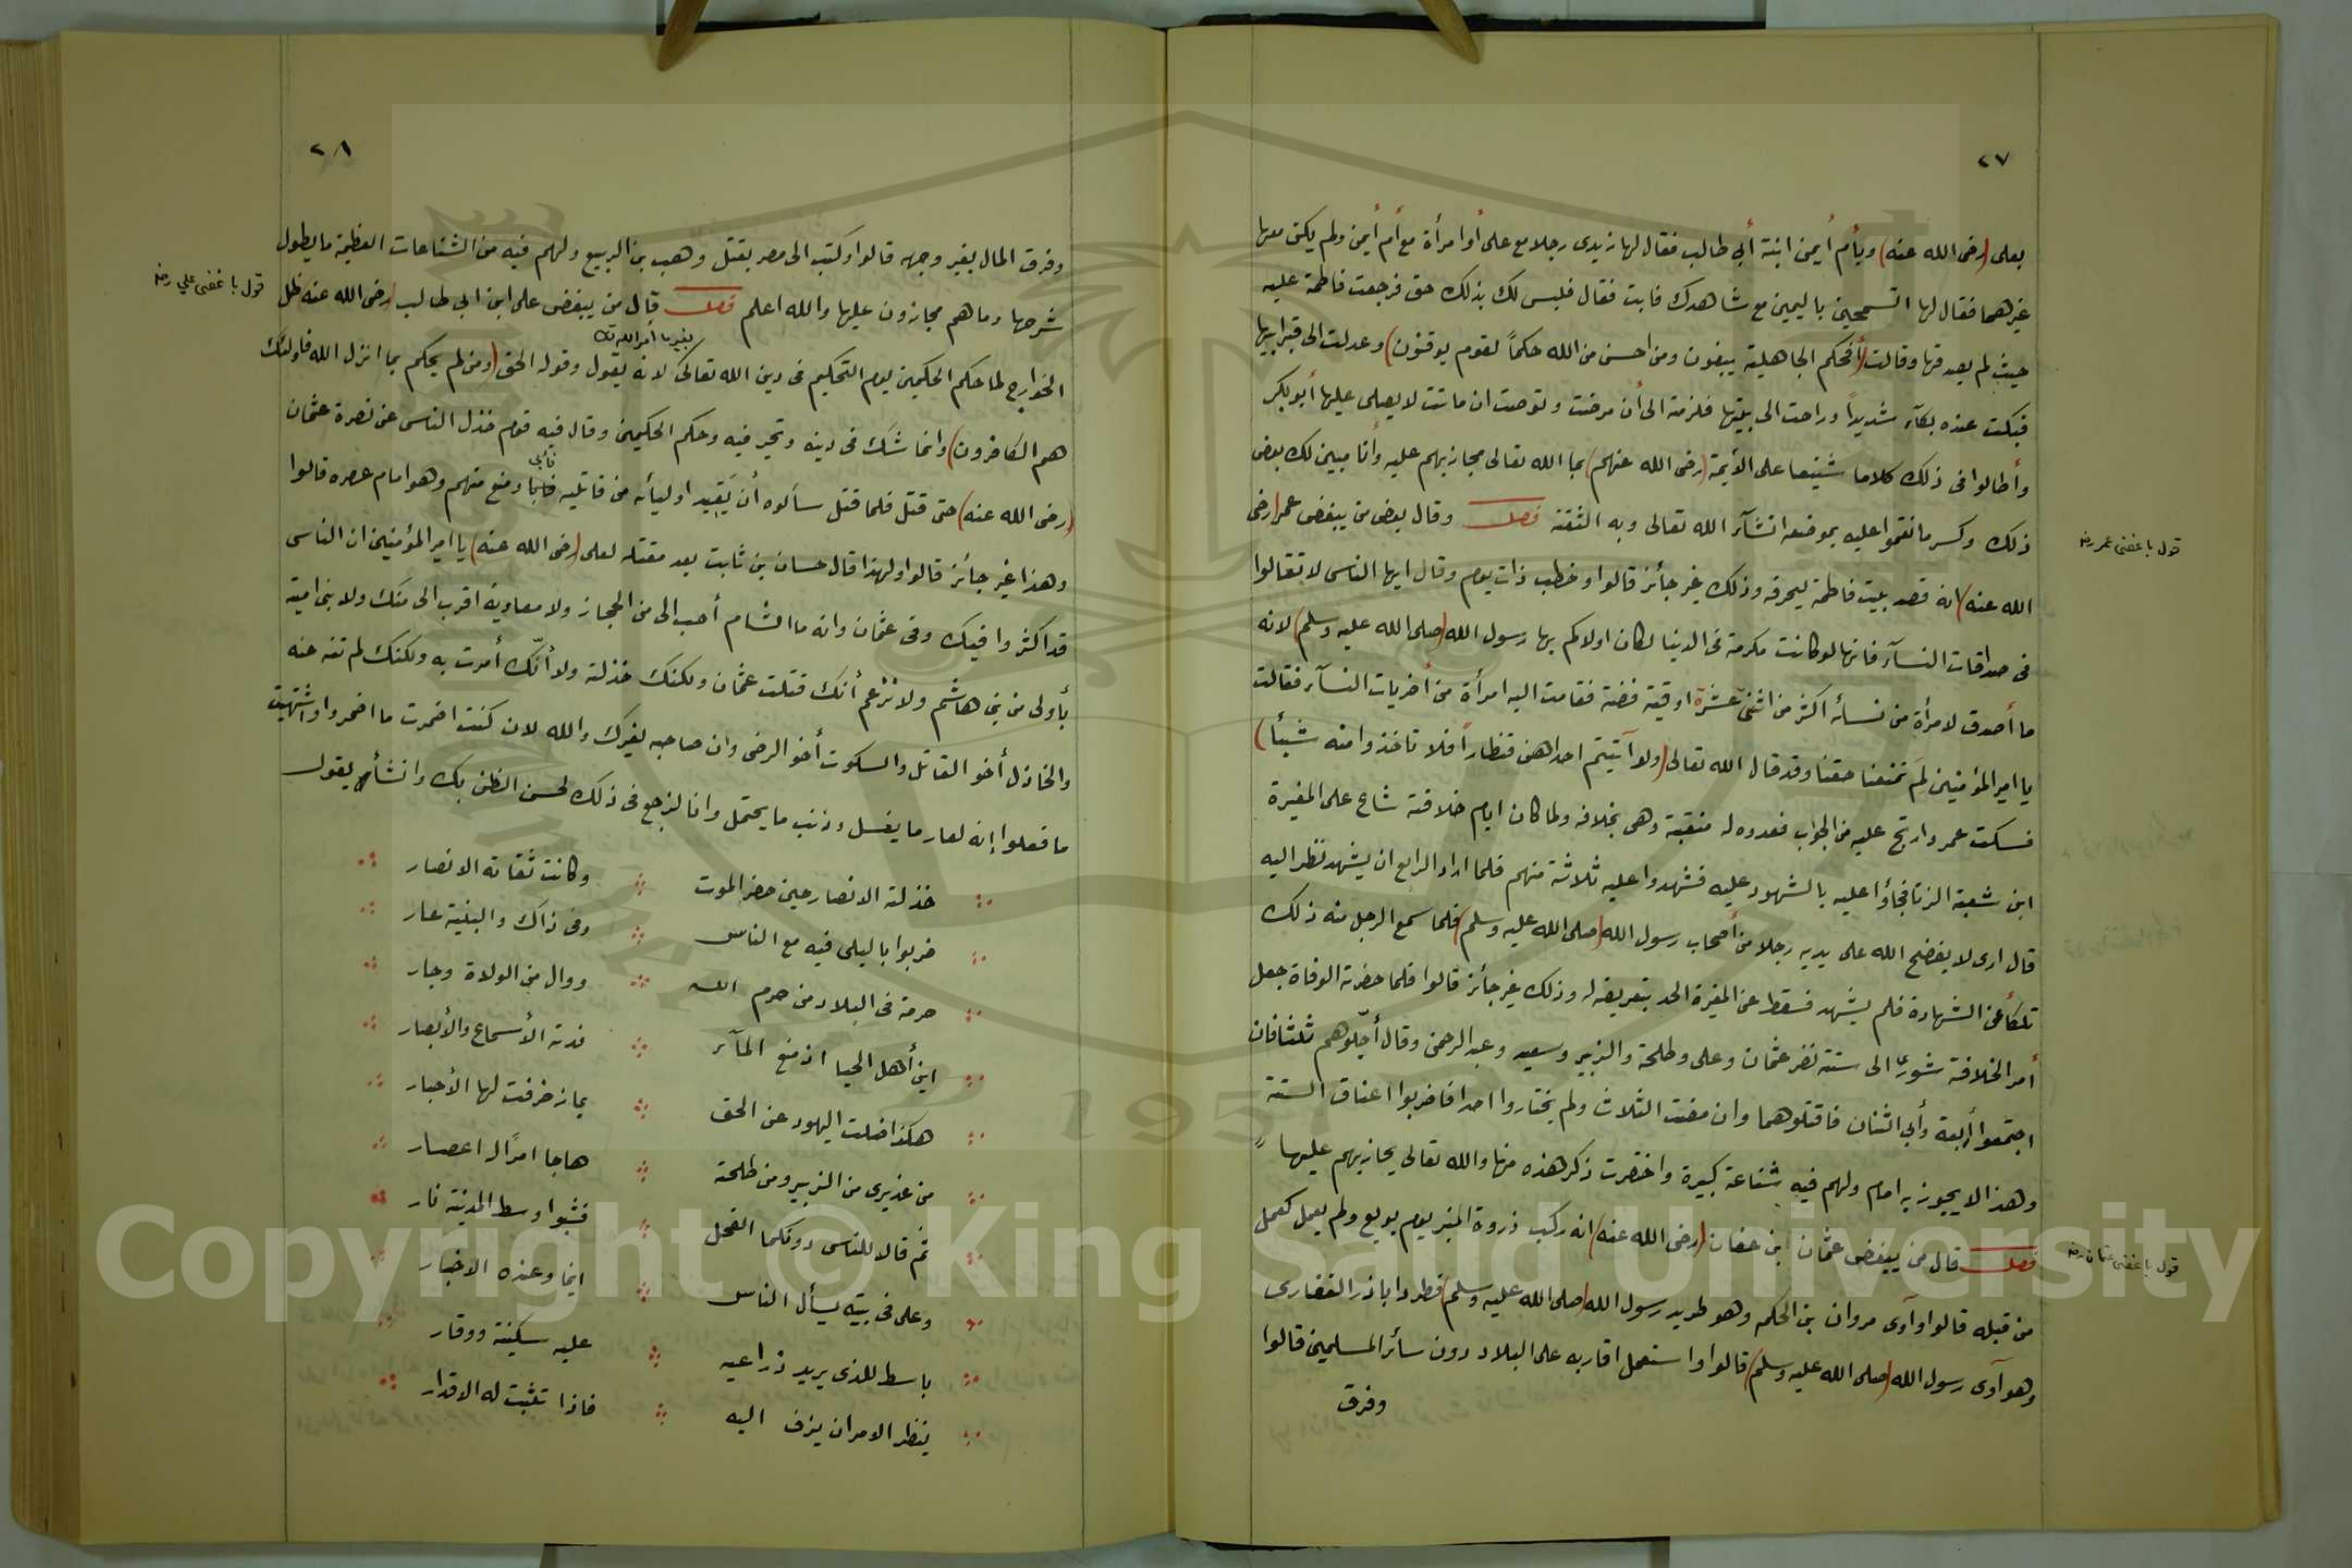 ٢٧
بعلى (رضى الله عنه) وبأم أيمن ابنة أبي طالب فقال لها زيدى رجلا مع على أوامرأة مع أم أيمن ولم يكن معها
غيرهما فقال لها اتسمحين باليمين مع شاهدك فابت فقال فليس لك بذلك حق فرجعت فاطمة عليه
حيث لم يصدقها وقالت (أفحكم الجاهلية يبغون ومن احسن من الله حكماً لقوم يوقنون) وعدلت الى قبر ابيها
فبكت عنده بكآء شديداً وراحت الى بيتها فلزمته الى أن مرضت وتوصت ان ماتت لا يصلى عليها أبوبكر
وأطالوا فى ذلك كلاما شنيعا على الأيمة (رضى الله عنهم) بما الله تعالى مجازيهم عليه وأنا مبين لك بعض
ذلك وكسر ما نقموا عليه بموضعه انشآء الله تعالى وبه الثقة فصل وقال بعض من يبغض عمر (رضى
قول باغضى عمر رضه
الله عنه) انه قصد بيت فاطمة ليحرقه وذلك غير جائز قالوا وخطب ذات يوم وقال ايها الناس لا تغالوا
فى صداقات النسآء فانها لو كانت مكرمة فى الدنيا لكان اولاكم بها رسول الله (صلى الله عليه وسلم) لانه
ما أصدق لامرأة من نسائه اكثر من اثنتى عشرة اوقية فضة فقامت اليه امرأة من أخريات النسآء فقالت
يا امير المؤمنين لِمَ تمنعنا حقنا وقد قال الله تعالى (ولو آتيتم احداهن قنطاراً فلا تاخذوا منه شيئاً)
فسكت عمر وارتج عليه من الجواب فعدوه له منقبة وهى بخلافه ولما كان ايام خلافته شاع على المغيرة
ابن شعبة الزنا فجأوا عليه بالشهود عليه فشهدوا عليه ثلاثة منهم فلما اراد الرابع ان يشهد نظر اليه
قال ارى لا يفضح الله على يديه رجلا من أصحاب رسول الله (صلى الله عليه وسلم) فلما سمع الرجل منه ذلك
تلكأ عن الشهادة فلم يشهد فسقط عن المغيرة الحد بتعريضه له وذلك غير جائز قالوا فلما حضرته الوفاة جعل
أمر الخلافة شورى الى ستة نفر عثمان وعلى وطلحة والزبير وسعيد وعبد الرحمن وقال أجّلوهم ثلثا فان
اجتمعوا أربعة وأبي اثنان فاقتلوهما وان مضت الثلاث ولم يختاروا احدا فاضربوا اعناق الستة
وهذا لا يجوز به امام ولهم فيه شناعة كبيرة واختصرت ذكر هذه منها والله تعالى يجازيهم عليها
فصل قال من يبغض عثمان ابن عفان (رضى الله عنه) انه ركب ذروة المنبر يوم بويع ولم يعمل كعمل
قول باغضى عثمان رضه
من قبله قالوا وآوى مروان بن الحكم وهو طريد رسول الله (صلى الله عليه وسلم) فطرد ابا ذر الغفارى
وهو آوى رسول الله (صلى الله عليه وسلم) قالوا واستعمل اقاربه على البلاد دون سائر المسلمين قالوا
وفرق
٢٨
وفرق المال بغير وجهه قالوا وكتب الى مصر بقتل وهب بن الربيع ولهم فيه من الشناعات العظيمة ما يطول
شرحها وما هم مجازون عليها والله اعلم فصل قال من يبغض على ابن ابى طالب (رضى الله عنه ظل
قول باغضى علي رضه
بغير ما أمر الله تك
الخوارج لما حكم الحكمين يوم التحكيم فى دين الله تعالى لانه يقول وقوله الحق (ومن لم يحكم بما انزل الله فاولئك
هم الكافرون) وانما شك فى دينه وتحير فيه وحكم الحكمين وقال فيه قوم خذل الناس عن نصرة عثمان
(رضى الله عنه) حتى قتل فلما قتل سألوه أن يَقيد اوليأه من قاتليه فأبى ومنع منهم وهو امام عصره قالوا
وهذا غير جائز قالوا ولهذا قال حسان بن ثابت بعد مقتله لعلى (رضى الله عنه) يا امير المؤمنين ان الناس
قد اكثروا فيك وفى عثمان وانه ما الشام أحب الى من الحجاز ولا معاوية اقرب الى منك ولا بنى امية
بأولى من بنى هاشم ولا نزعم أنك قتلت عثمان ولكنك خذلته ولا أنّك أمرت به ولكنك لم تنه عنه
والخاذل أخو القاتل والسكوت أخو الرضى وان صاحبه لغيرك والله لان كنت اضمرت ما اضمروا واشتهيت
ما فعلوا إنه لعار ما يغسل وذنب ما يحتمل وانا لنرجع فى ذلك لحسن الظن بك وانشأ يقول
خذلته الانصار حين حضر الموت وكانت ثقاته الانصار
ضربوا بالبلى فيه مع الناس وفى ذاك والبلية عار
حرمة فى البلاد من حرم الله ووال من الولاة وجار
اين أهل الحيا اذ منع المآء فدته الأسماع والأبصار
هكذا ضلت اليهود عن الحق بما زخرفت لها الأحبار
من عذيرى من الزبير ومن طلحة هاجا امرًا له اعصار
ثم قالا للناس دونكما الفحل فشبوا وسط المدينة نار
وعلى فى بيته يسأل الناس ايما وعنده الاخبار
باسط للذى يريد ذراعيه عليه سكينة ووقار
ينظر الامر ان يزف اليه فاذا تثبت له الاقدار
Copyright © King Saud University
1957